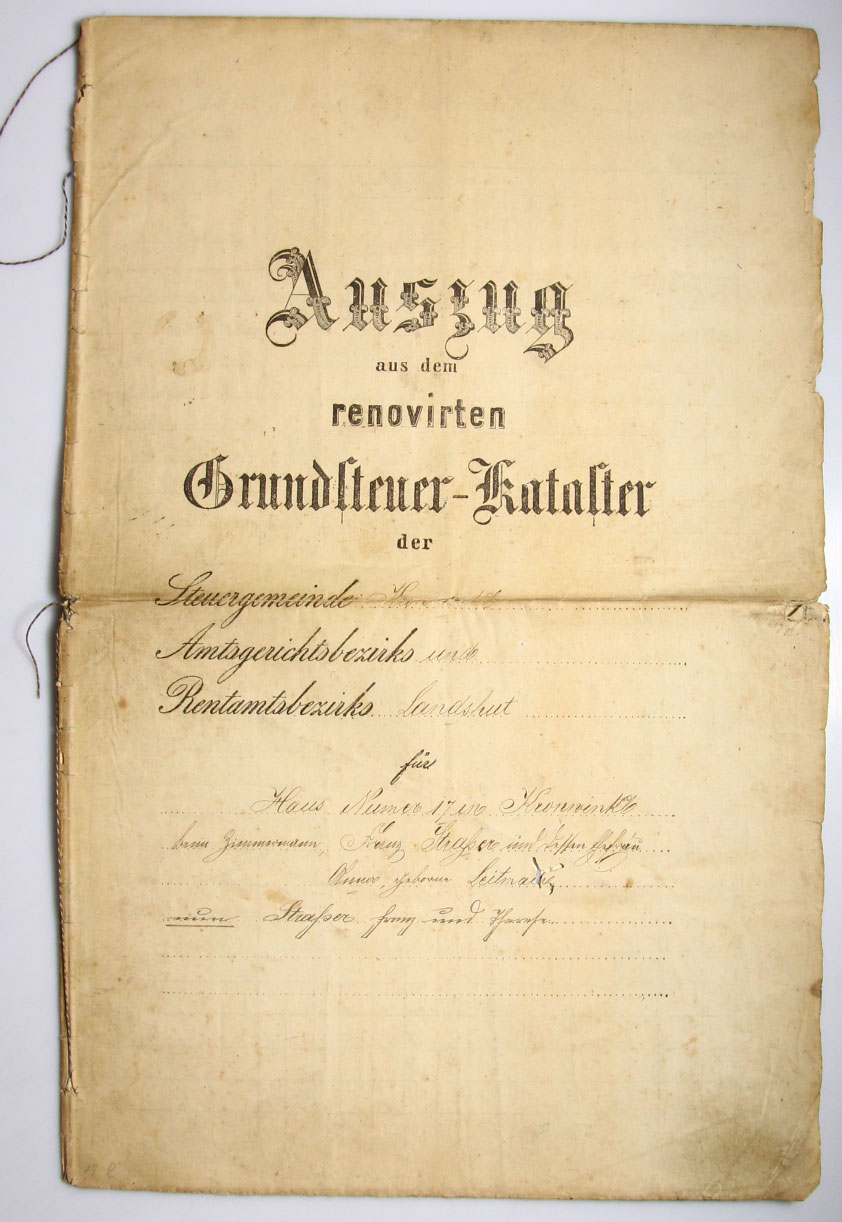 Auszug
aus dem
renovirten
Grundsteuer-Kataster
der
Steuergemeinde
Amtsgerichtsbezirks und
Rentamtsbezirks Landshut
für
Haus Numer 17 in Kronwinkl
beim Zimmermann, Franz Straßer und dessen Ehefrau
Anna, geborne
nun Straßer Franz und Therese